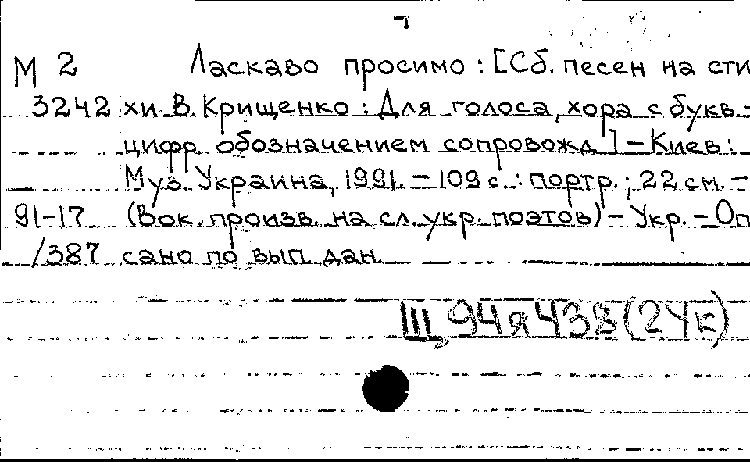 М 2 Ласкаво просимо : [Сб. песен на сти
3242 хи В. Крищенко : Для голоса, хора с букв.-
цифр. обозначением сопровожд.] – Киев :
Муз. Украина, 1991. – 109 с. : портр. ; 22 см. –
91-17 (Вок. произв. на сл. укр. поэтов) – Укр. – Оп
/387 сано по вып. дан.
Щ 94я438(2Ук)